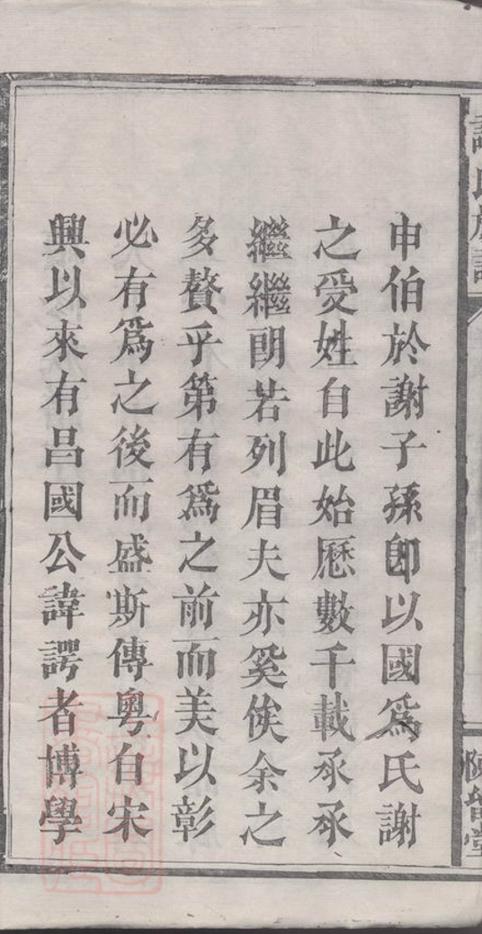 謝氏族譜
申伯於謝子孫即以國爲氏謝
之受姓自此始歷數千載承承
繼繼朗若列眉夫亦奚俟余之
多贅乎第有爲之前而美以彰
必有爲之後而盛斯傳粵自宋
興以來有昌國公諱諤者博學
陳留堂